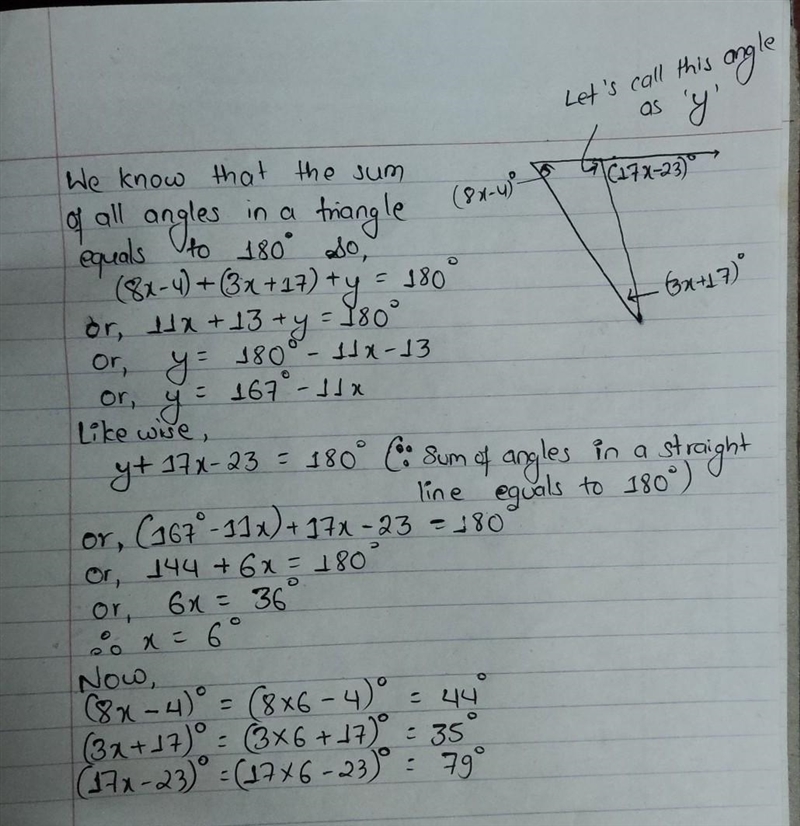 Let's call this angle
as 'y'
(8x-4)°
(17x-23)°
(3x+17)°
We know that the sum
of all angles in a triangle
equals to 180° so,
(8x-4)+(3x+17)+y = 180°
or, 11x+13+y=180°
or, y = 180° - 11x-13
or, y = 167° - 11x
Like wise,
y+17x-23 = 180° (∵ Sum of angles in a straight
line equals to 180°)
or, (167° -11x)+17x-23 =180°
or, 144 + 6x = 180°
or, 6x = 36°
∴ x = 6°
Now,
(8x-4)° = (8×6-4)° = 44°
(3x+17)° = (3×6+17)° = 35°
(17x-23)° =(17×6-23)° = 79°